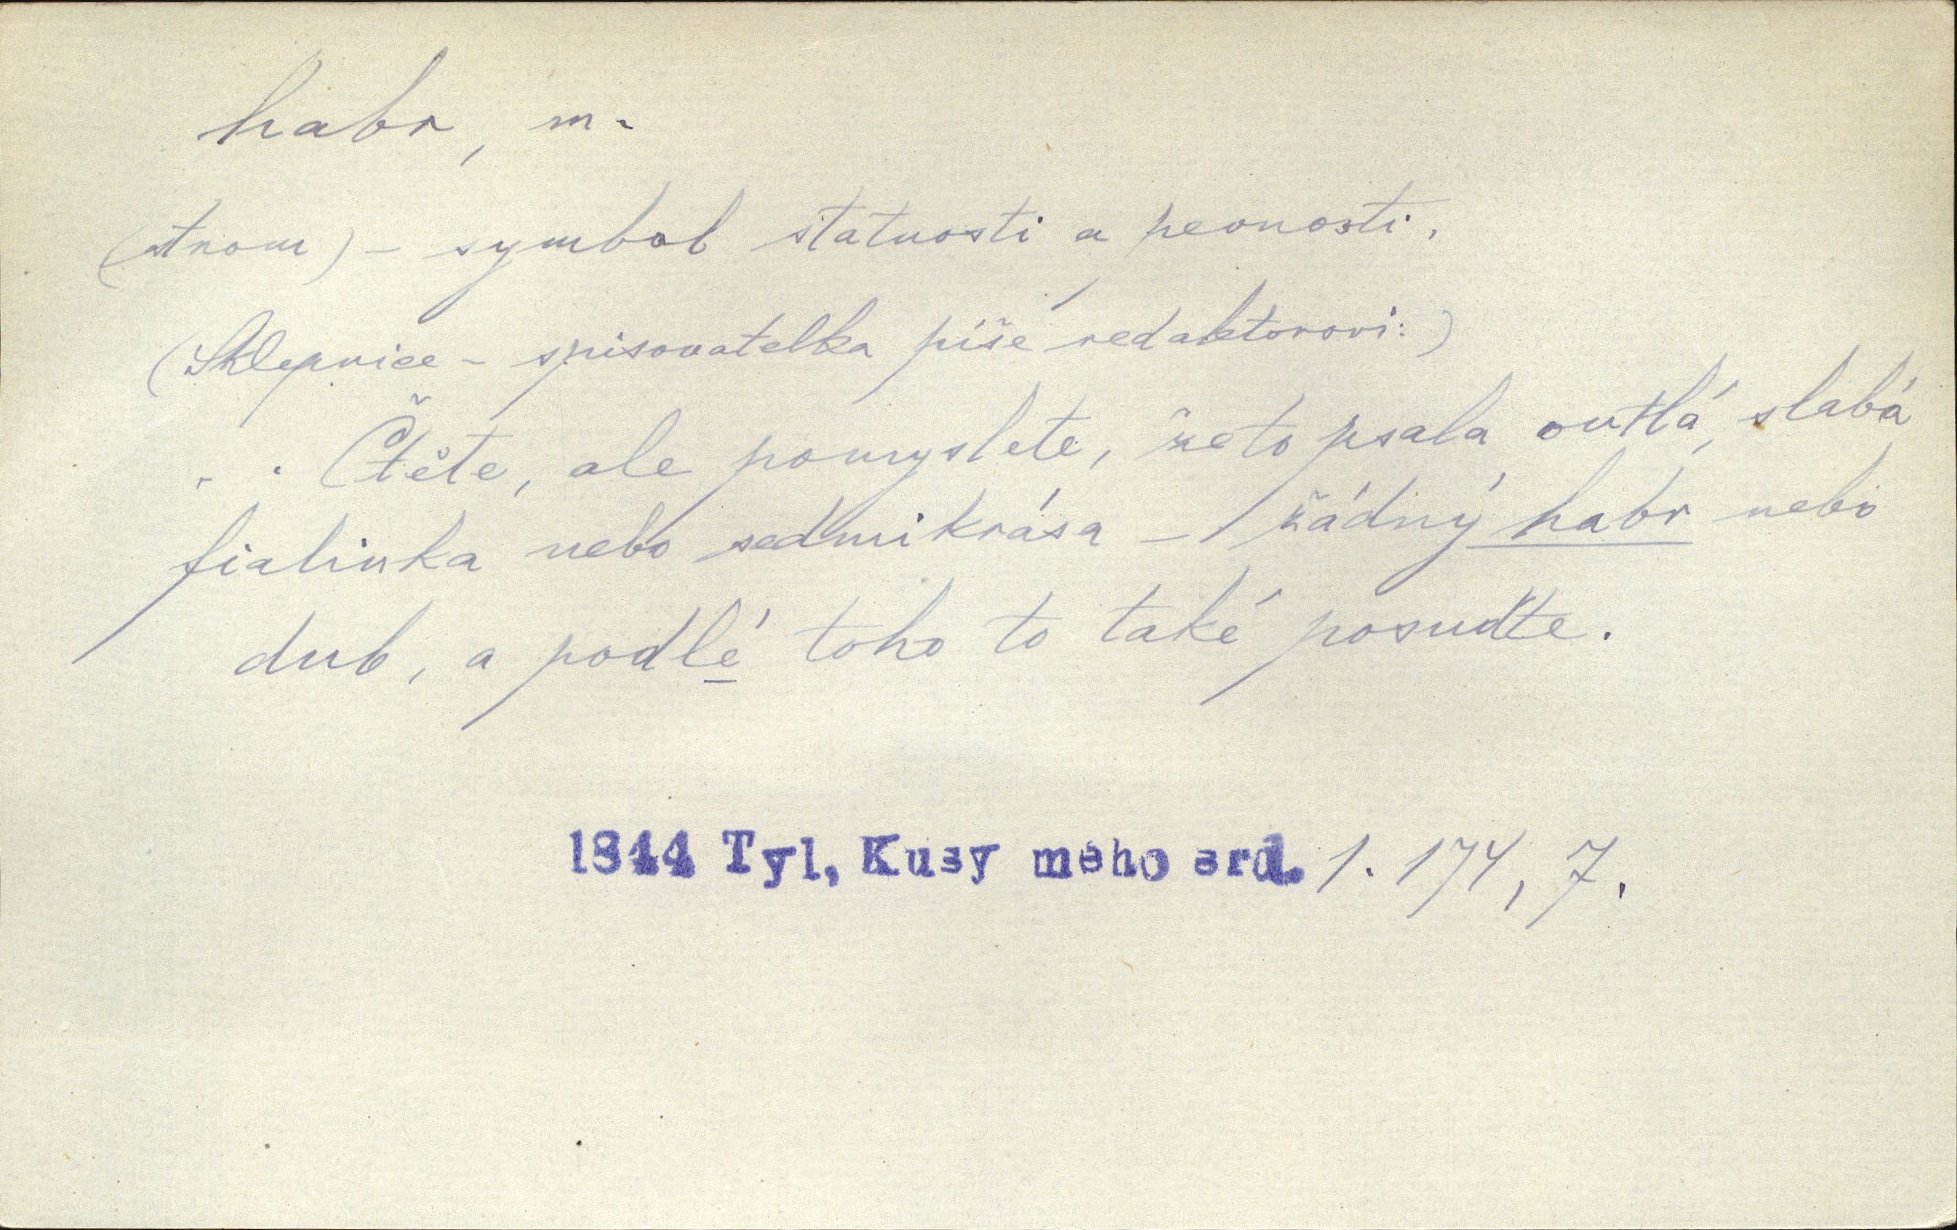 habr, m.
(strom) - symbol statnosti a pevnosti.
(Sklepnice - spisovatelka píše redaktorovi:)
. . Čtěte, ale pomyslete, že to psala outlá, slabá
fialinka nebo sedmikrása - žádný habr nebo
dub, a podlé toho to také posuďte.
1844 Tyl, Kusy meho srd. 1. 174, 7.